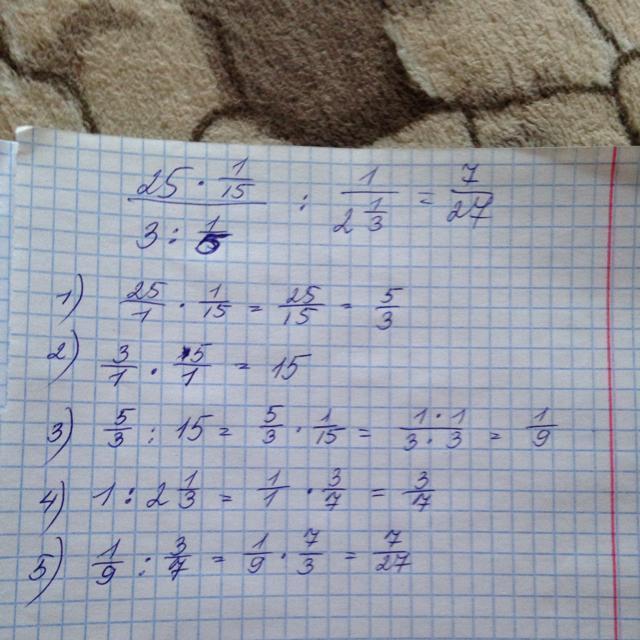 25 · 1/15 / 3 : 1/5 : 1 / 2 1/3 = 7/27
1) 25/1 · 1/15 = 25/15 = 5/3
2) 3/1 · 5/1 = 15
3) 5/3 : 15 = 5/3 · 1/15 = 1·1/3·3 = 1/9
4) 1 : 2 1/3 = 1/1 · 3/7 = 3/7
5) 1/9 : 3/7 = 1/9 · 7/3 = 7/27